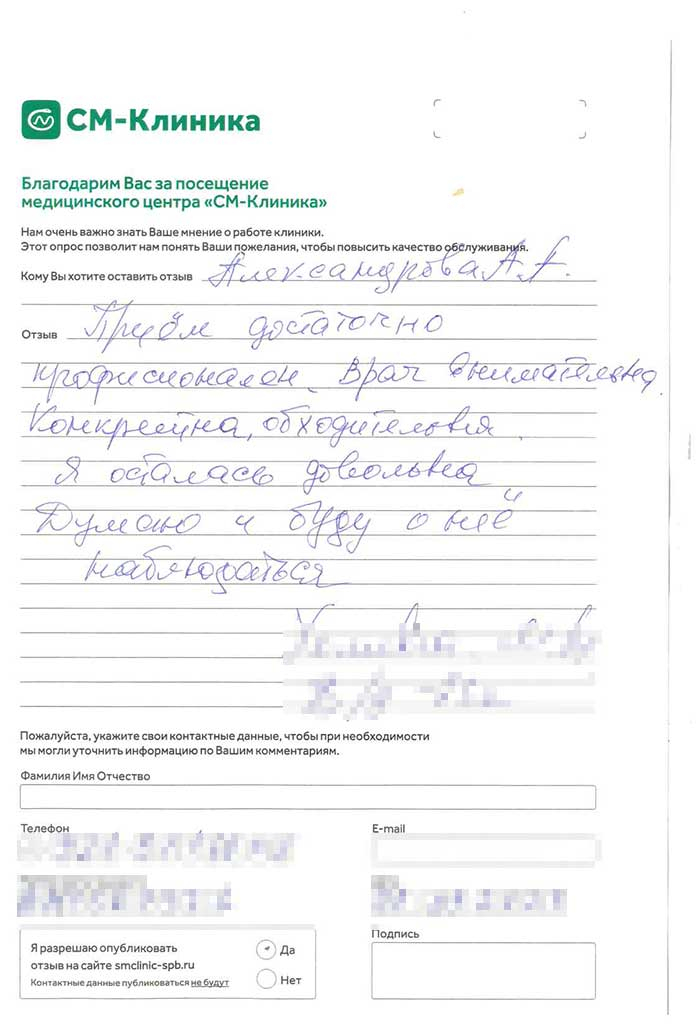 СМ-Клиника
Благодарим Вас за посещение
медицинского центра «СМ-Клиника»
Нам очень важно знать Ваше мнение о работе клиники.
Этот опрос позволит нам понять Ваши пожелания, чтобы повысить качество обслуживания.
Кому Вы хотите оставить отзыв Александрова А.А.
Отзыв Приём достаточно
професионален. Врач внимательна,
Конкретна, обходительная.
Я осталась довольна
Думаю и буду о неё
наблюдаться
Пожалуйста, укажите свои контактные данные, чтобы при необходимости
мы могли уточнить информацию по Вашим комментариям.
Фамилия Имя Отчество
Телефон
E-mail
Подпись
Я разрешаю опубликовать
отзыв на сайте smclinic-spb.ru
Контактные данные публиковаться не будут
Да
Нет